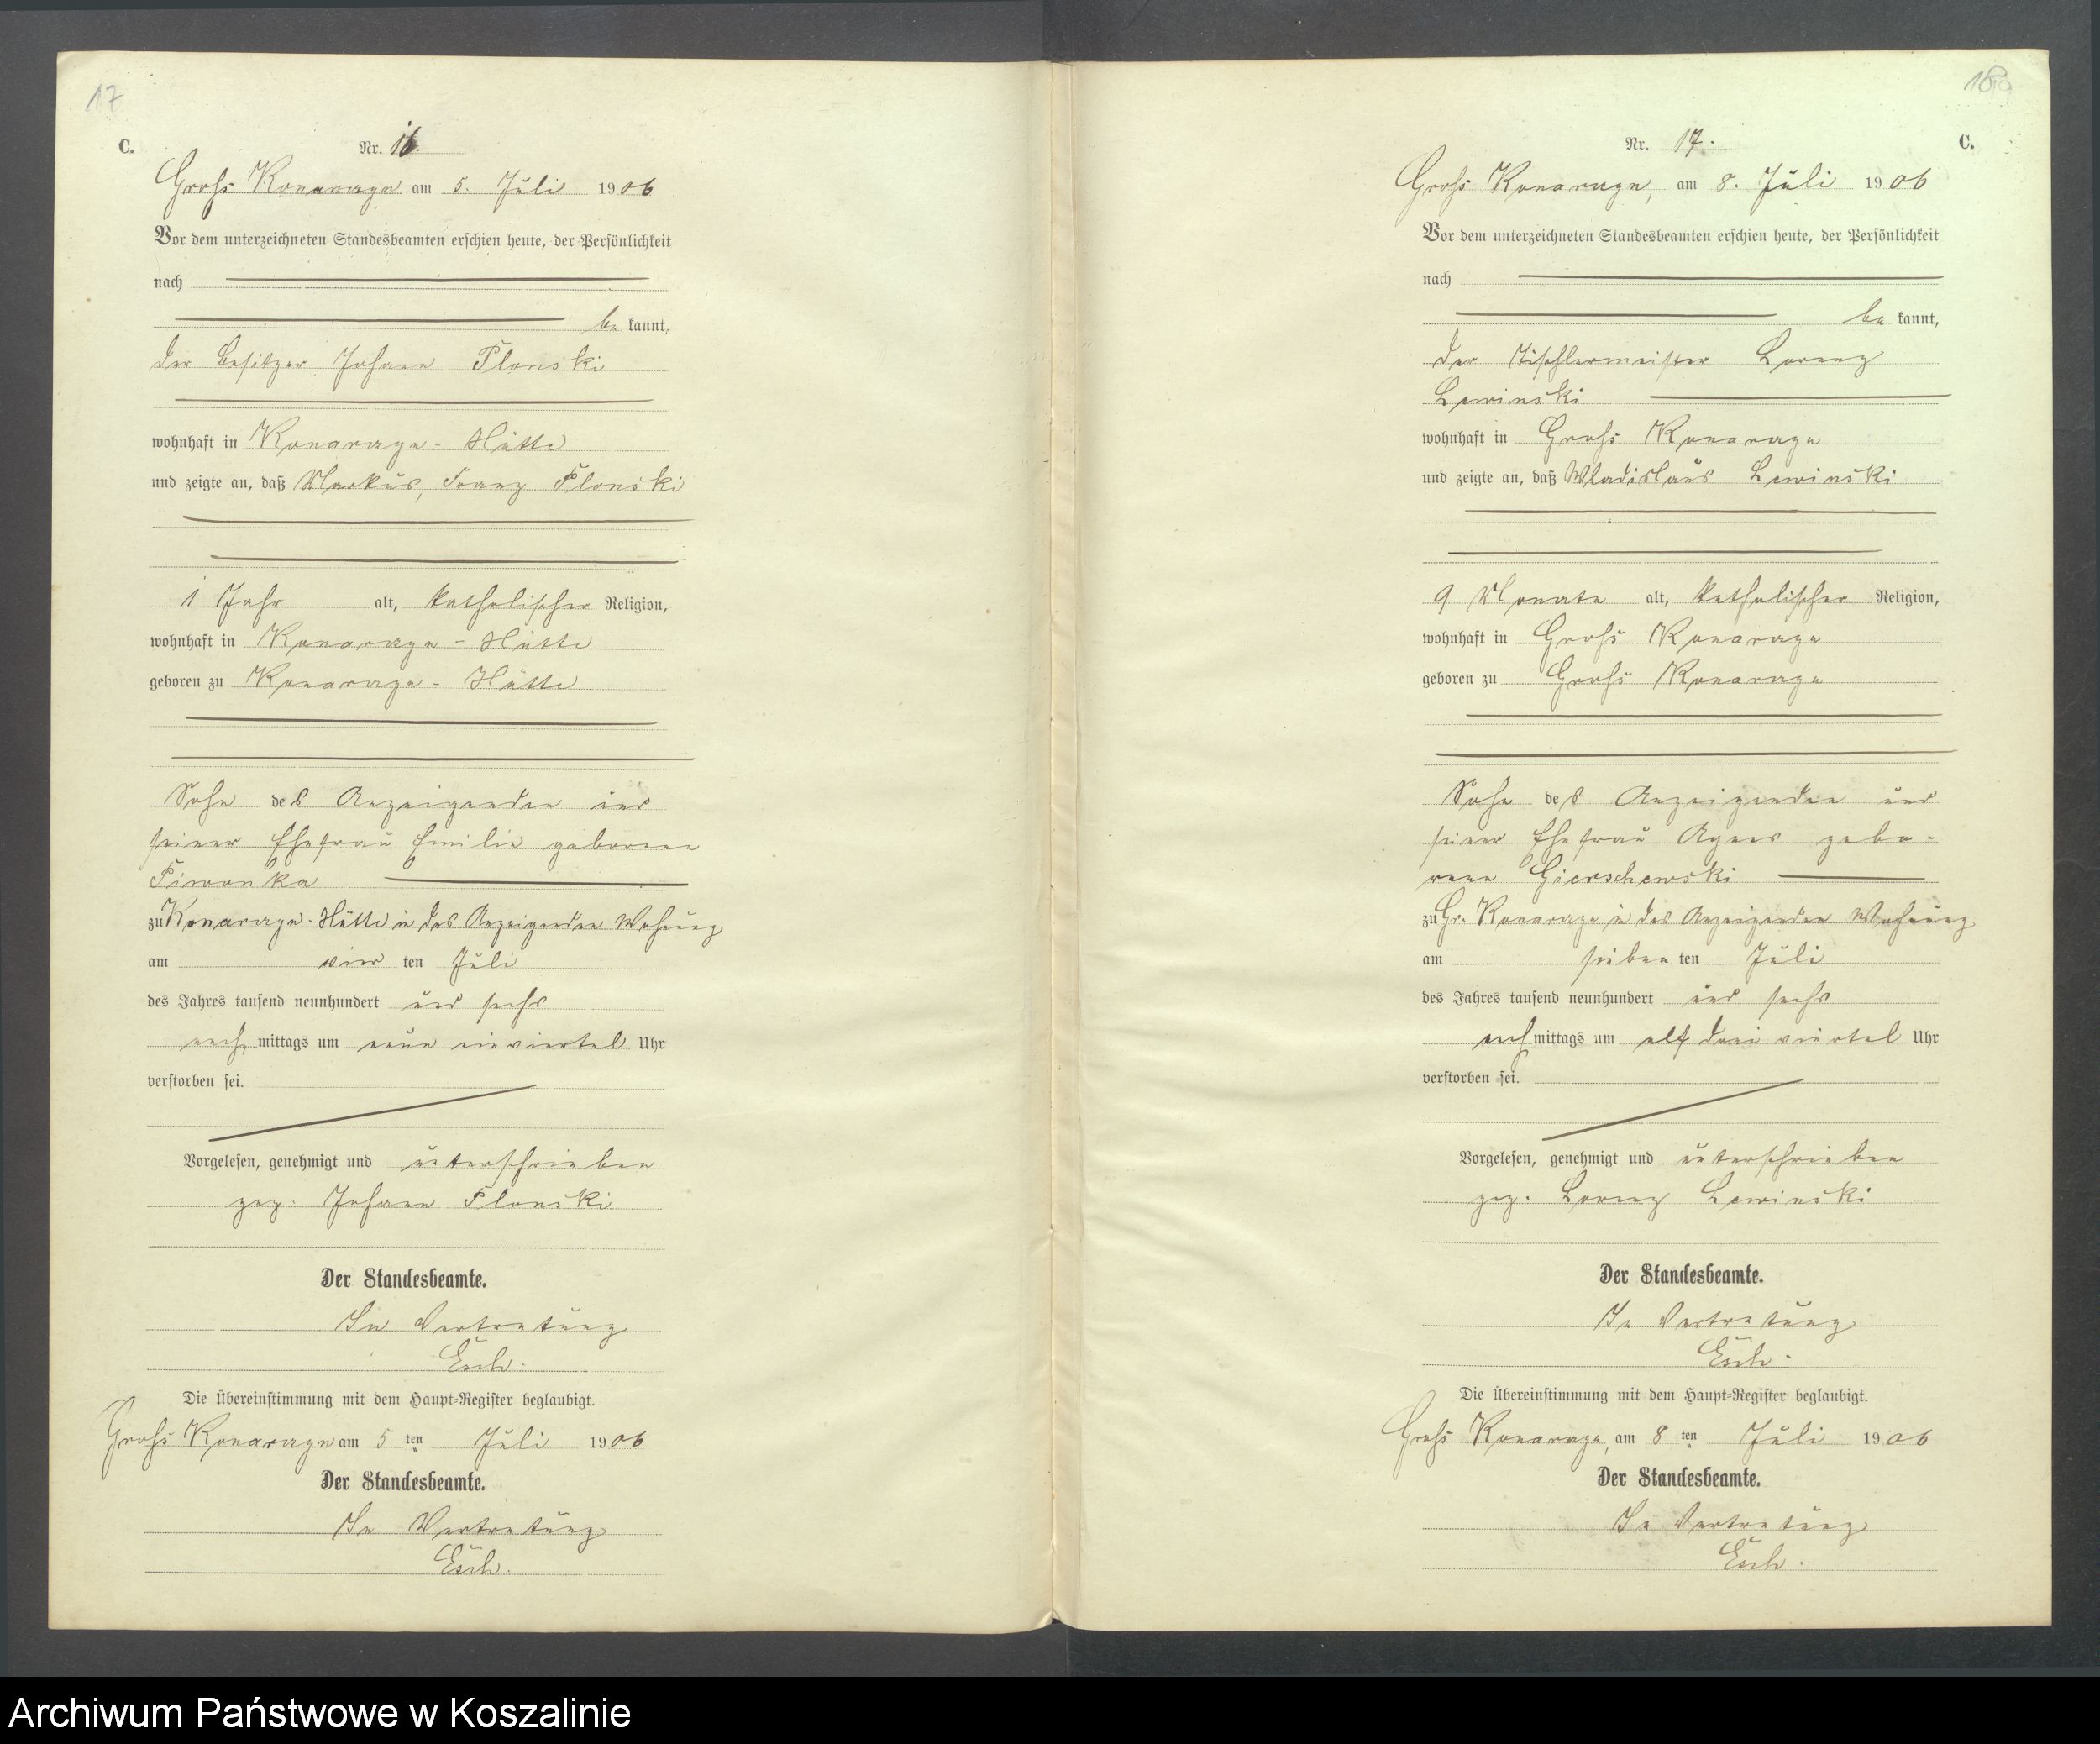 17
C.
Nr. 16.
Groß Konarzyn am 5. Juli 1906
Vor dem unterzeichneten Standesbeamten erschien heute, der Persönlichkeit
nach
be kannt,
der Besitzer Johann Plonski
wohnhaft in Konarzyn-Hütte
und zeigte an, daß Markus, Franz Plonski
1 Jahr alt, katholischer Religion,
wohnhaft in Konarzyn-Hütte
geboren zu Konarzyn-Hütte
Sohn des Anzeigenden und
seiner Ehefrau Emilie geborenen
Piwonka
zu Konarzyn-Hütte in des Anzeigenden Wohnung
am vier ten Juli
des Jahres tausend neunhundert und sechs
nach mittags um neun einviertel Uhr
verstorben sei.
Vorgelesen, genehmigt und unterschrieben
gez. Johann Plonski
Der Standesbeamte.
In Vertretung
Esch.
Die Übereinstimmung mit dem Haupt-Register beglaubigt.
Groß Konarzyn am 5 ten Juli 1906
Der Standesbeamte.
In Vertretung
Esch.
18
Nr. 17.
C.
Groß Konarzyn, am 8. Juli 1906
Vor dem unterzeichneten Standesbeamten erschien heute, der Persönlichkeit
nach
be kannt,
der Tischlermeister Lorenz
Lewinski
wohnhaft in Groß Konarzyn
und zeigte an, daß Wladislaus Lewinski
9 Monate alt, katholischer Religion,
wohnhaft in Groß Konarzyn
geboren zu Groß Konarzyn
Sohn des Anzeigenden und
seiner Ehefrau Agnes gebo-
rene Gierschewski
zu Gr. Konarzyn in des Anzeigenden Wohnung
am sieben ten Juli
des Jahres tausend neunhundert und sechs
nach mittags um elf drei viertel Uhr
verstorben sei.
Vorgelesen, genehmigt und unterschrieben
gez. Lorenz Lewinski
Der Standesbeamte.
In Vertretung
Esch.
Die Übereinstimmung mit dem Haupt-Register beglaubigt.
Groß Konarzyn, am 8 ten Juli 1906
Der Standesbeamte.
In Vertretung
Esch.
Archiwum Państwowe w Koszalinie